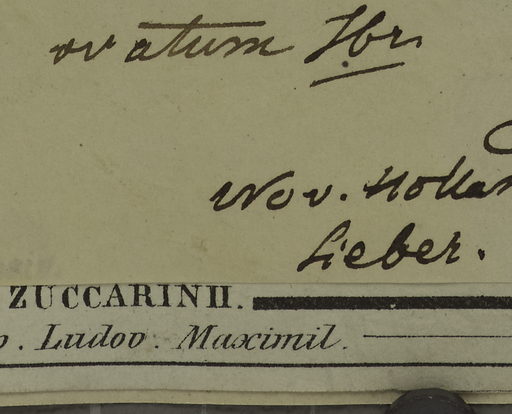 ovatum Hbr.
Nov. Hollan
Sieber.
ZUCCARINII.
. Ludov. Maximil.